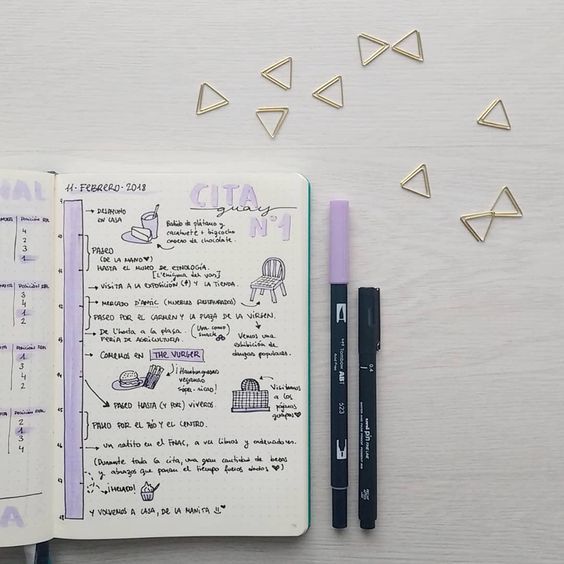 11 · FEBRERO · 2018
CITA
guay
Nº1
DESAYUNO
EN CASA
Batido de plátano y
cacahuete + bizcocho
casero de chocolate.
PASEO
(DE LA MANO ♥)
HASTA EL MUSEO DE ETNOLOGÍA.
[L'enigma del vas]
VISITA A LA EXPOSICIÓN (♥) Y LA TIENDA.
MERCADO D'AMIC (MUEBLES RESTAURADOS)
PASEO POR EL CARMEN Y LA PLAZA DE LA VIRGEN.
De l'horta a la plaça.
FERIA DE AGRICULTURA.
Vemos una
exhibición de
danzas populares.
COMEMOS EN THE VURGER
¡Hamburguesas
veganas
súper-ricas!
Visitamos
a los
pájaros
guapos ♥
PASEO HASTA (Y POR) VIVEROS.
PASEO POR EL RÍO Y EL CENTRO.
UN RATITO EN EL FNAC, A VER LIBROS Y ORDENADORES.
(Durante toda la cita, una gran cantidad de besos
y abrazos que paran el tiempo fueron dados ♥)
¡HELADO!
Y VOLVEMOS A CASA, DE LA MANITA ♥
NAL
POSICIÓN
4
2
3
1
POSICIÓN
3
4
1
2
POSICIÓN
4
3
1
2
POSICIÓN
2
1
3
4
A
Tombow
ABT
523
uni pin
FINE LINE
0.4